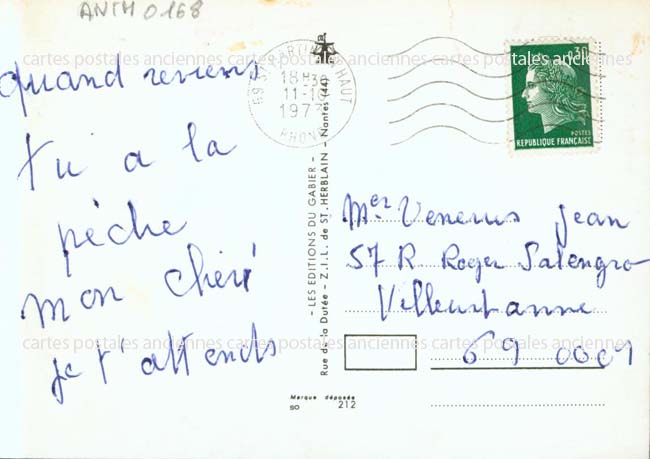 ANTM 0168
cartes postales anciennes cartes postales anciennes cartes postales anciennes
quand reviens
tu a la
pêche
mon cheri
je t'attends
18H30
11-1
197
RHONE
0,30
POSTES
REPUBLIQUE FRANÇAISE
- LES EDITIONS DU GABIER -
Rue de la Dutée - Z.I.L. de ST. HERBLAIN - Nantes (44)
Mer Venerus Jean
57 R Roger Salengro
Villeurbanne
69 0009
cartes postales anciennes cartes postales anciennes cartes postales anciennes
Marque déposée
SO 212